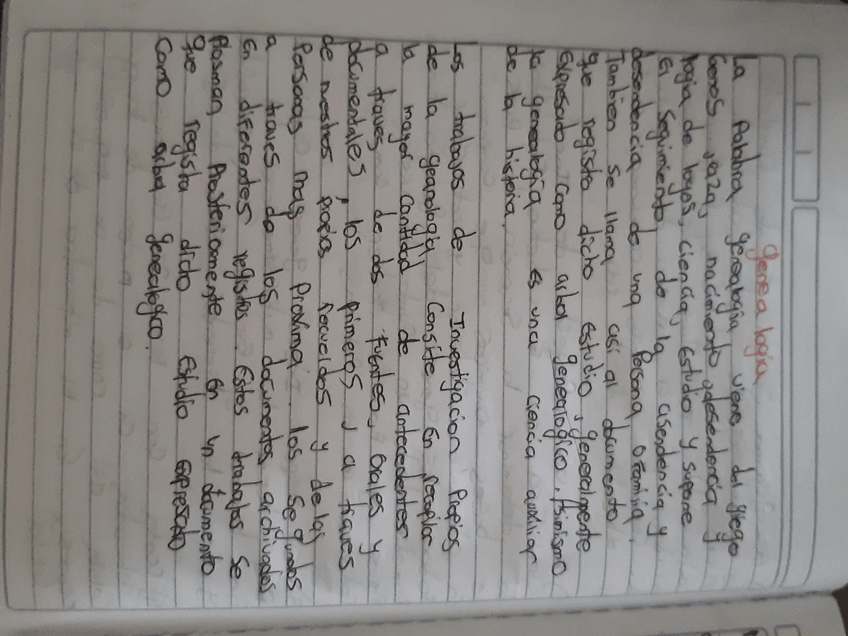 genealogia
La Palabra genealogia viene del griego
Genos raza, nacimiento, desendencia y
logia de logos, ciencia, estudio y supone
El seguimiento de la asendencia y
desendencia de una Persona o Familia.
Tambien se llama asi al documento
que registra dicho estudio, generalmente
expresado como arbol genealogico. Asimismo
la genealogia es una ciencia auxiliar
de la historia.
Los trabajos de Investigacion Propios
de la geanologia, Consite en recoplar
la mayor cantidad de antecedentes
a traves de dos fuentes, orales y
documentales, los primeros, a traves
de nuestros propios recuerdos y de las
Personas mas Proxima. los segundos
a traves de los documentos archivados
En diferentes registros. Estos trabajos se
Plasman Prosteriormente en un documento
que registra dicho estudio expresado
Como arbol genealogico.